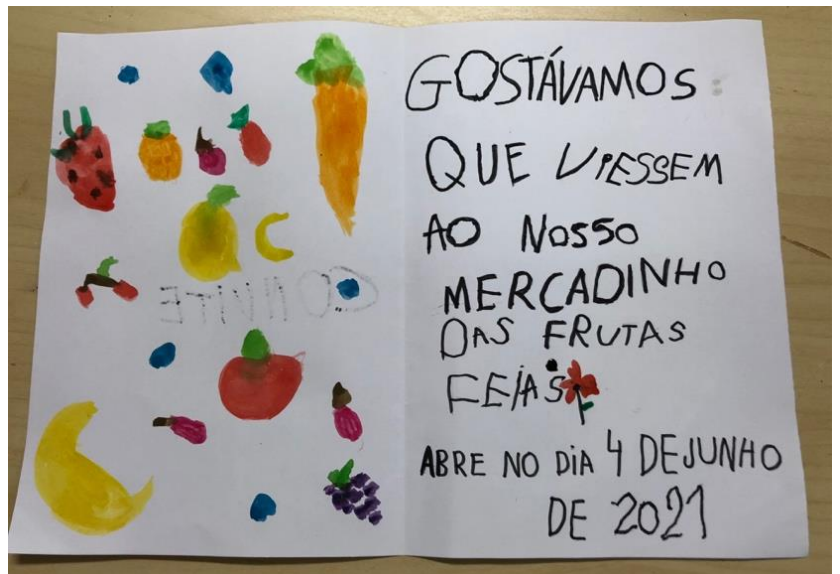 CONVITE
GOSTÁVAMOS
QUE VIESSEM
AO NOSSO
MERCADINHO
DAS FRUTAS
FEIAS
ABRE NO DIA 4 DE JUNHO
DE 2021